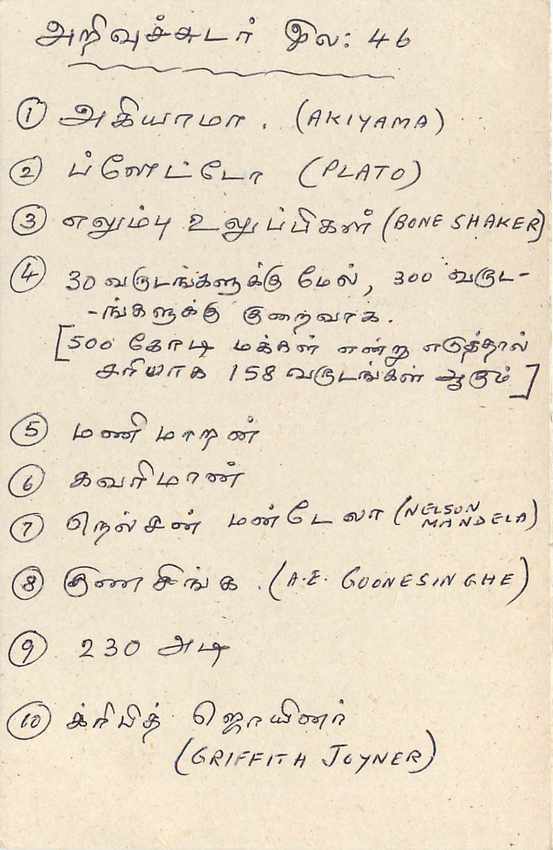 அறிவுச்சுடர் இல: 46
① அகியாமா. (AKIYAMA)
② ப்ளேட்டோ (PLATO)
③ எலும்பு உலுப்பிகள் (BONE SHAKER)
④ 30 வருடங்களுக்கு மேல், 300 வருட-
-ங்களுக்கு குறைவாக.
[500 கோடி மக்கள் என்று எடுத்தால்
சரியாக 158 வருடங்கள் ஆகும்]
⑤ மணிமாறன்
⑥ கவரிமான்
⑦ நெல்சன் மண்டேலா (NELSON
MANDELA)
⑧ குணசிங்க. (A.E. GOONESINGHE)
⑨ 230 அடி
⑩ க்ரிபித் ஜொயினர்
(GRIFFITH JOYNER)